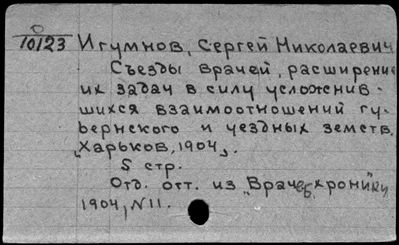 О
10123 Игумнов, Сергей Николаевич
Съезды врачей, расширение
их задач в силу усложнив-
шихся взаимоотношений гу-
бернского и уездных земств.
"Харьков, 1904".
5 стр.
Отд. отт. из "Врачеб. хроники"
1904, N11.